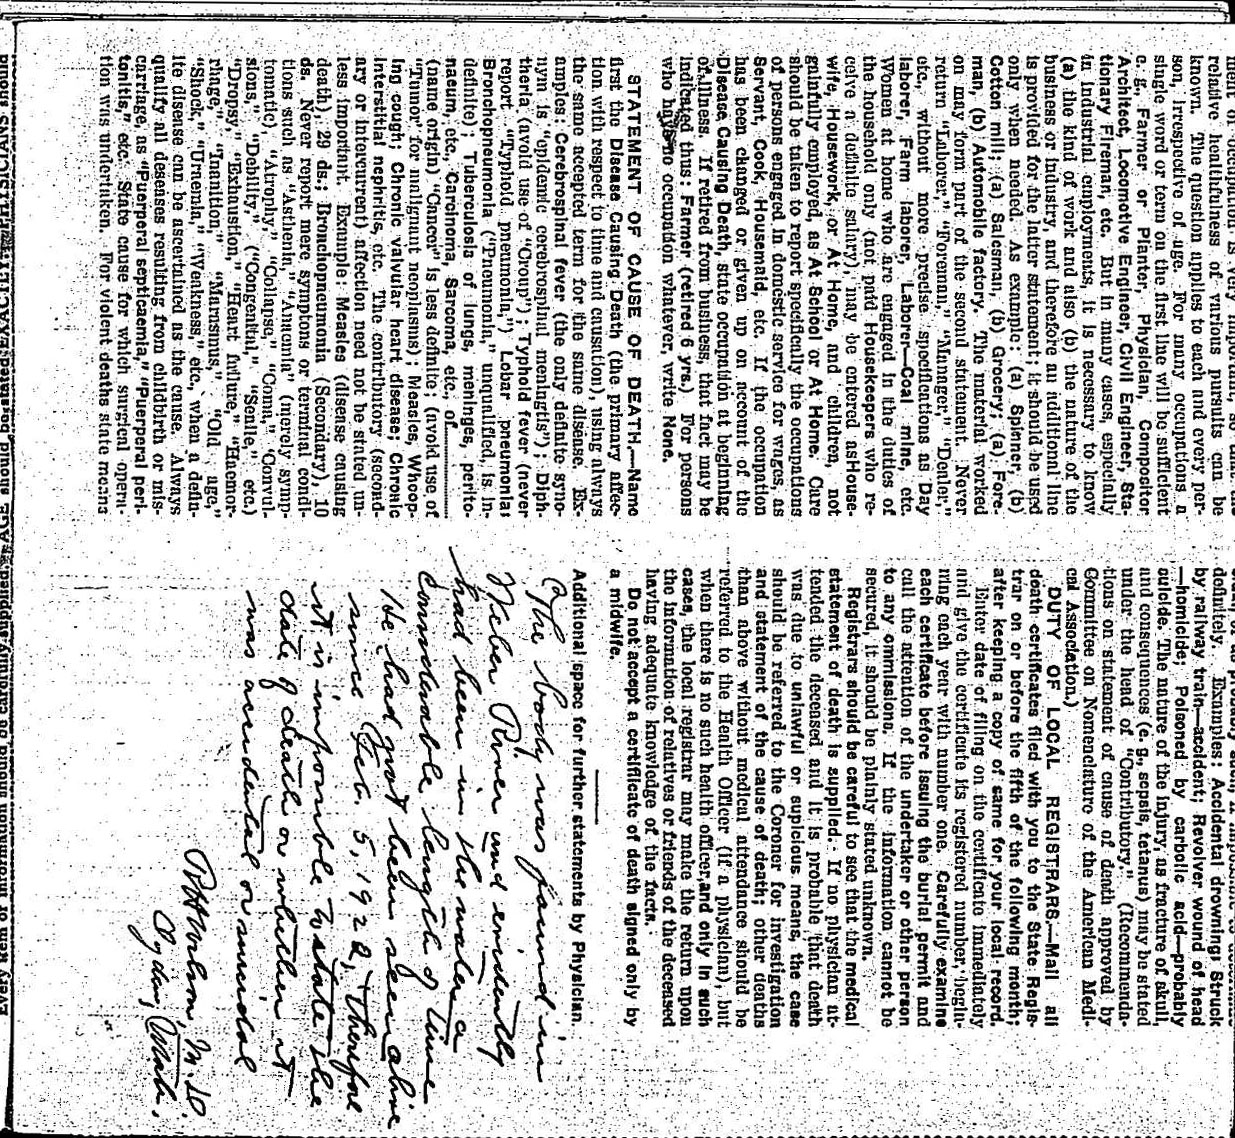 relative healthfulness of various pursuits can be
known. The question applies to each and every per-
son, irrespective of age. For many occupations a
single word or term on the first line will be sufficient
e. g., Farmer or Planter, Physician, Compositor,
Architect, Locomotive Engineer, Civil Engineer, Sta-
tionary Fireman, etc. But in many cases, especially
in industrial employments, it is necessary to know
(a) the kind of work and also (b) the nature of the
business or industry, and therefore an additional line
is provided for the latter statement; it should be used
only when needed. As example: (a) Spinner, (b)
Cotton mill; (a) Salesman, (b) Grocery; (a) Fore-
man, (b) Automobile factory. The material worked
on may form part of the second statement. Never
return "Laborer," "Foreman," "Manager," "Dealer,"
etc., without more precise specifications as Day
laborer, Farm laborer, Laborer—Coal mine, etc.
Women at home who are engaged in the duties of
the household only (not paid Housekeepers who re-
ceive a definite salary), may be entered as House-
wife, Housework, or At Home, and children, not
gainfully employed, as At School or At Home. Care
should be taken to report specifically the occupations
of persons engaged in domestic service for wages, as
Servant, Cook, Housemaid, etc. If the occupation
has been changed or given up on account of the
Disease Causing Death, state occupation at beginning
of illness. If retired from business, that fact may be
indicated thus: Farmer (retired 6 yrs.) For persons
who have no occupation whatever, write None.
STATEMENT OF CAUSE OF DEATH.—Name
first the Disease Causing Death (the primary affec-
tion with respect to time and causation), using always
the same accepted term for the same disease. Ex-
amples: Cerebrospinal fever (the only definite syno-
nym is "epidemic cerebrospinal meningtis"); Diph-
theria (avoid use of "Croup"); Typhoid fever (never
report "Typhoid pneumonia,") Lobar pneumonia;
Bronchopneumonia ("Pneumonia," unqualified, is in-
definite); Tuberculosis of lungs, meninges, perito-
naeum, etc., Carcinoma, Sarcoma, etc., of
(name origin) "Cancer" is less definite; (avoid use of
"Tumor" for malignant neoplasms); Measles, Whoop-
ing cough; Chronic valvular heart disease; Chronic
interstitial nephritis, etc. The contributory (second-
ary or intercurrent) affection need not be stated un-
less important. Example: Measles (disease causing
death), 29 ds.; Bronchopneumonia (Secondary), 10
ds. Never report mere symptoms or terminal condi-
tions such as "Asthenia," "Anaemia" (merely symp-
tomatic), "Atrophy," "Colapse," "Coma," "Convul-
sions," "Debility," ("Congenital," "Senile," etc.)
"Dropsy," "Exhaustion," "Heart failure," "Haemor-
rhage," "Inanition," "Marasmus," "Old age,"
"Shock," "Uraemia," "Weakness," etc., when a defin-
ite disease can be ascertained as the cause. Always
qualify all diseases resulting from childbirth or mis-
carriage, as "Puerperal septicaemia," "Puerperal peri-
tonitis," etc. State cause for which surgical opera-
tion was undertaken. For violent deaths state means
definitely. Examples: Accidental drowning; Struck
by railway train—accident; Revolver wound of head
—homicide; Poisoned by carbolic acid—probably
suicide. The nature of the injury, as fracture of skull,
and consequences (e. g., sepsis, tetanus) may be stated
under the head of "Contributory." (Recommenda-
tions on statement of cause of death approved by
Committee on Nomenclature of the American Medi-
cal Association.)
DUTY OF LOCAL REGISTRARS.—Mail all
death certificates filed with you to the State Regis-
trar on or before the fifth of the following month;
after keeping a copy of same for your local record.
Enter date of filing on the certificate immediately
and give the certificate its registered number, begin-
ning each year with number one. Carefully examine
each certificate before issuing the burial permit and
call the attention of the undertaker or other person
to any ommissions. If the information cannot be
secured, it should be plainly stated unknown.
Registrars should be careful to see that the medical
statement of death is supplied. If no physician at-
tended the deceased and it is probable that death
was due to unlawful or supicious means, the case
should be referred to the Coroner for investigation
and statement of the cause of death; other deaths
than above without medical attendance should be
referred to the Health Officer (if a physician), but
when there is no such health officer, and only in such
cases, the local registrar may make the return upon
the information of relatives or friends of the deceased
having adequate knowledge of the facts.
Do not accept a certificate of death signed only by
a midwife.
Additional space for further statements by Physician.
The body was found in
Weber River and evidently
had been in the water a
considerable length of time
He had not been seen alive
since Feb. 5, 1922, therefore
it is impossible to state the
date of death or whether it
was accidental or suicidal
M.D.
Ogden, Utah.